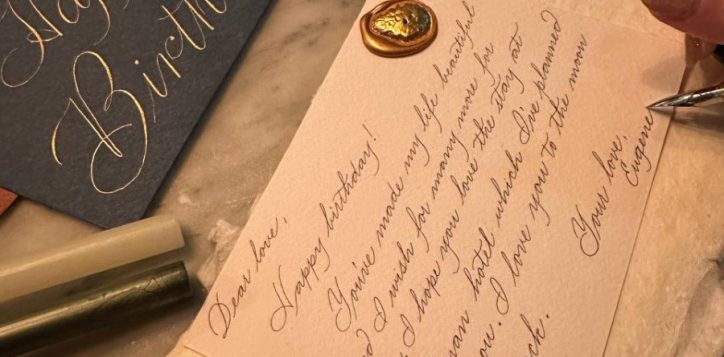 Hap
Birth
Dear love,
Happy birthday!
You've made my life beautiful
d I wish for many more for
. I hope you love the stay at
man hotel which I've planned
ou. I love you to the moon
ck.
Your love,
Eugene